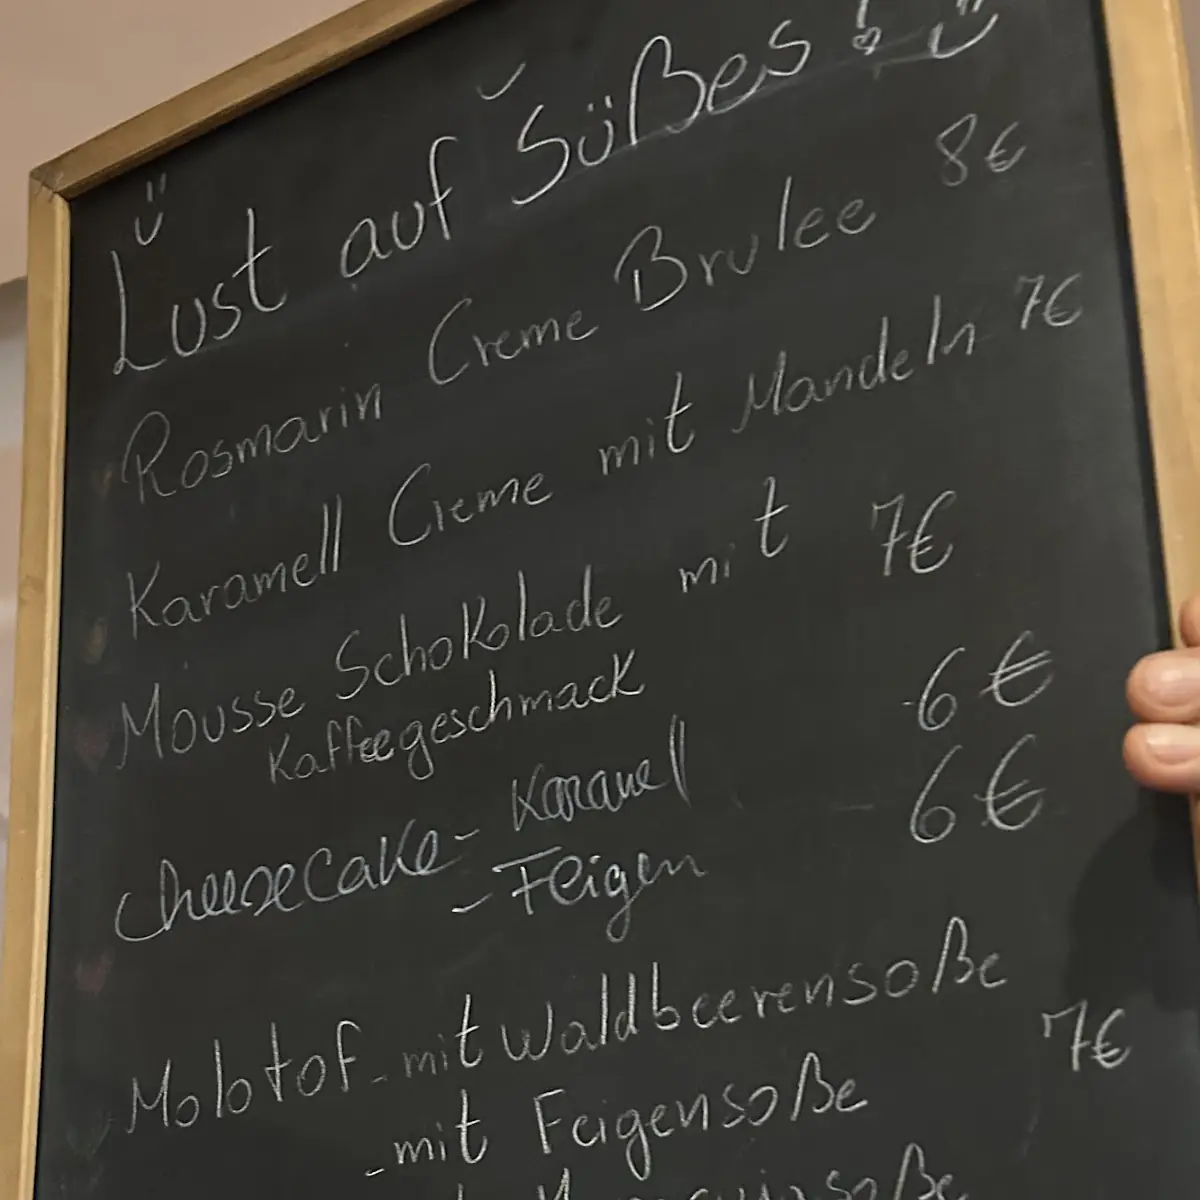 Lust auf Süßes!
Rosmarin Creme Brulee 8€
Karamell Creme mit Mandeln 7€
Mousse Schokolade mit 7€
Kaffeegeschmack
Cheesecake - Karamell 6€
- Feigen 6€
Molotof - mit Waldbeerensoße
- mit Feigensoße 7€